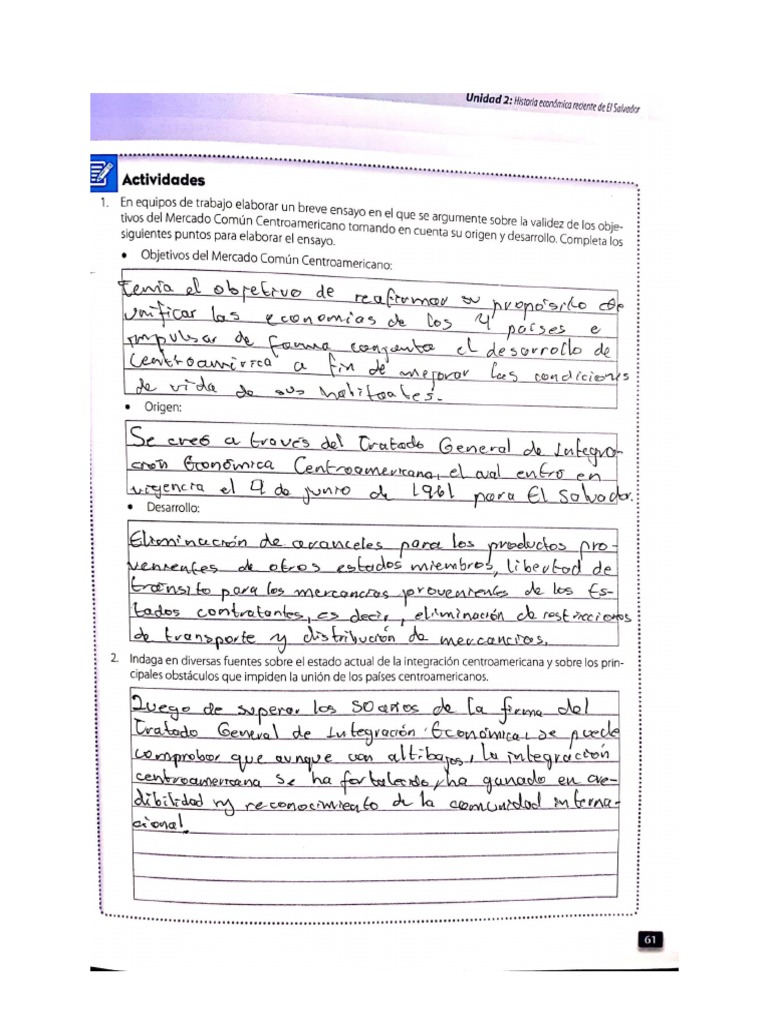 Unidad 2: Historia económica reciente de El Salvador
Actividades
1. En equipos de trabajo elaborar un breve ensayo en el que se argumente sobre la validez de los obje-
tivos del Mercado Común Centroamericano tomando en cuenta su origen y desarrollo. Completa los
siguientes puntos para elaborar el ensayo.
• Objetivos del Mercado Común Centroamericano:
Tenía el objetivo de reafirmar su propósito de
unificar las economías de los 4 países e
impulsar de forma conjunta el desarrollo de
Centroamirica a fin de mejorar las condiciones
de vida de sus habitoales.
• Origen:
Se creó a través del Tratado General de Integra-
ción Económica Centroamericana, el cual entro en
vigencia el 4 de junio de 1961 para El Salvador.
• Desarrollo:
Eliminación de aranceles para los productos pro-
venientes de otros estados miembros, libertad de
tránsito para las mercancías provenientes de los Es-
tados contratantes, es decir, eliminación de restricciones
de transporte y distribución de mercancías.
2. Indaga en diversas fuentes sobre el estado actual de la integración centroamericana y sobre los prin-
cipales obstáculos que impiden la unión de los países centroamericanos.
Luego de superar los 50 años de la firma del
Tratado General de Integración Económica, se puede
comprobar que aunque con altibajos, la integración
centroamericana se ha fortalecido, ha ganado en cre-
dibilidad y reconocimiento de la comunidad interna-
cional.
61